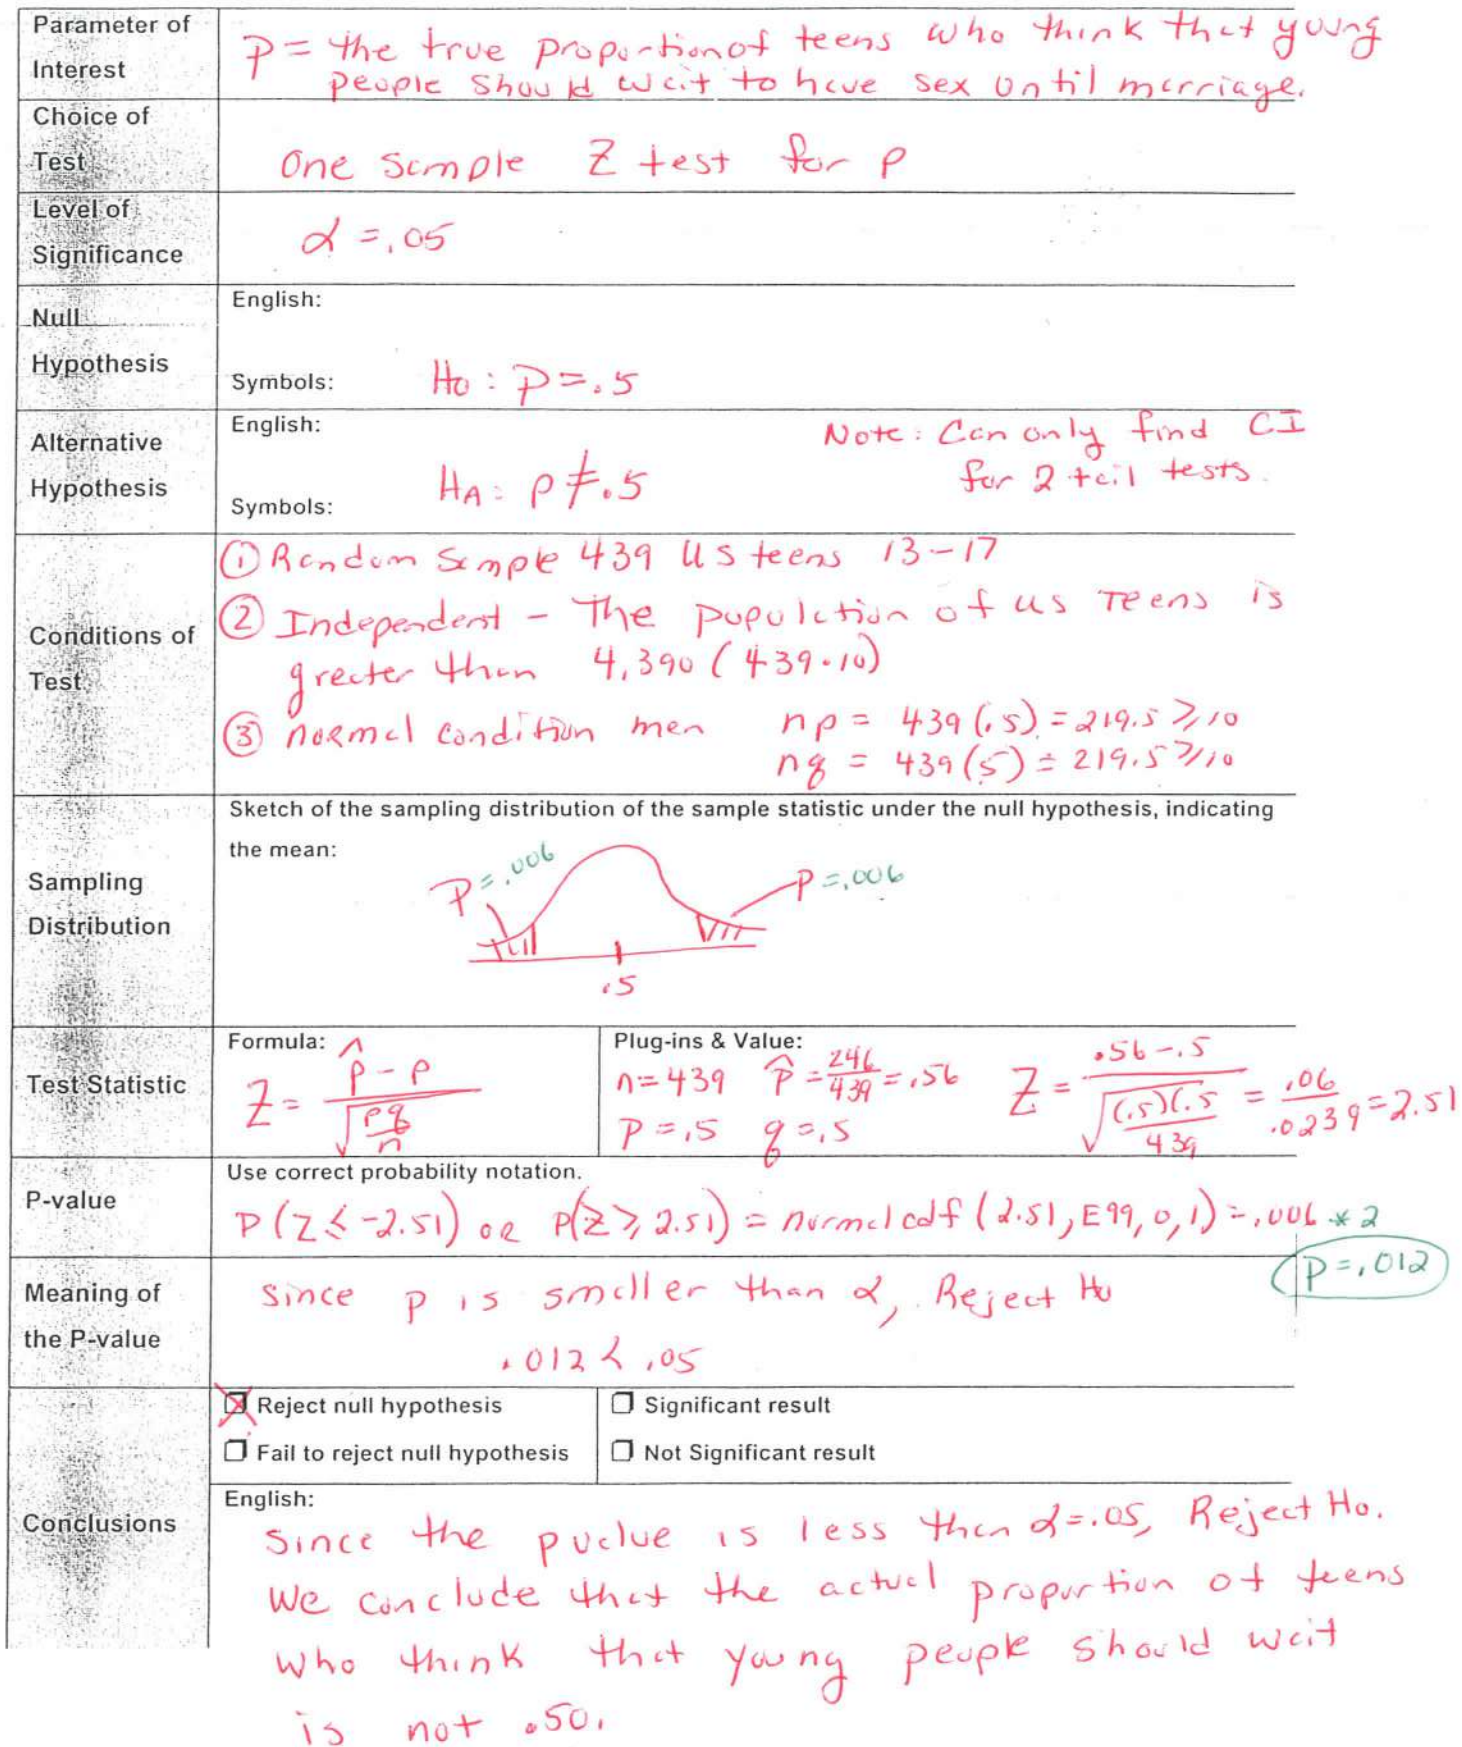 Parameter of
Interest
P = the true proportion of teens who think that young
people should wait to have sex until marriage.
Choice of
Test
One sample Z test for p
Level of
Significance
α = .05
Null
Hypothesis
English:
Symbols: H0 : P = .5
Alternative
Hypothesis
English:
Symbols: HA: p ≠ .5
Note: Can only find CI
for 2 tail tests.
Conditions of
Test
① Random Sample 439 US teens 13-17
② Independent - The population of US Teens is
greater than 4,390 (439·10)
③ Normal condition men np = 439 (.5) = 219.5 ≥ 10
nq = 439(5) = 219.5 ≥ 10
Sampling
Distribution
Sketch of the sampling distribution of the sample statistic under the null hypothesis, indicating
the mean:
P = .006
P = .006
.5
Test Statistic
Formula:
Z = p̂ - p / √(pq/n)
Plug-ins & Value:
n = 439 p̂ = 246/439 = .56
P = .5 q = .5
Z = .56 - .5 / √((.5)(.5/439) = .06/.0239 = 2.51
P-value
Use correct probability notation.
P(Z ≤ -2.51) or P(Z ≥ 2.51) = normalcdf (2.51, E99, 0, 1) = .006 * 2
P = .012
Meaning of
the P-value
Since p is smaller than α, Reject H0
.012 < .05
Conclusions
Reject null hypothesis
Fail to reject null hypothesis
Significant result
Not Significant result
English:
Since the pvalue is less than α = .05, Reject Ho.
We conclude that the actual proportion of teens
who think that young people should wait
is not .50.